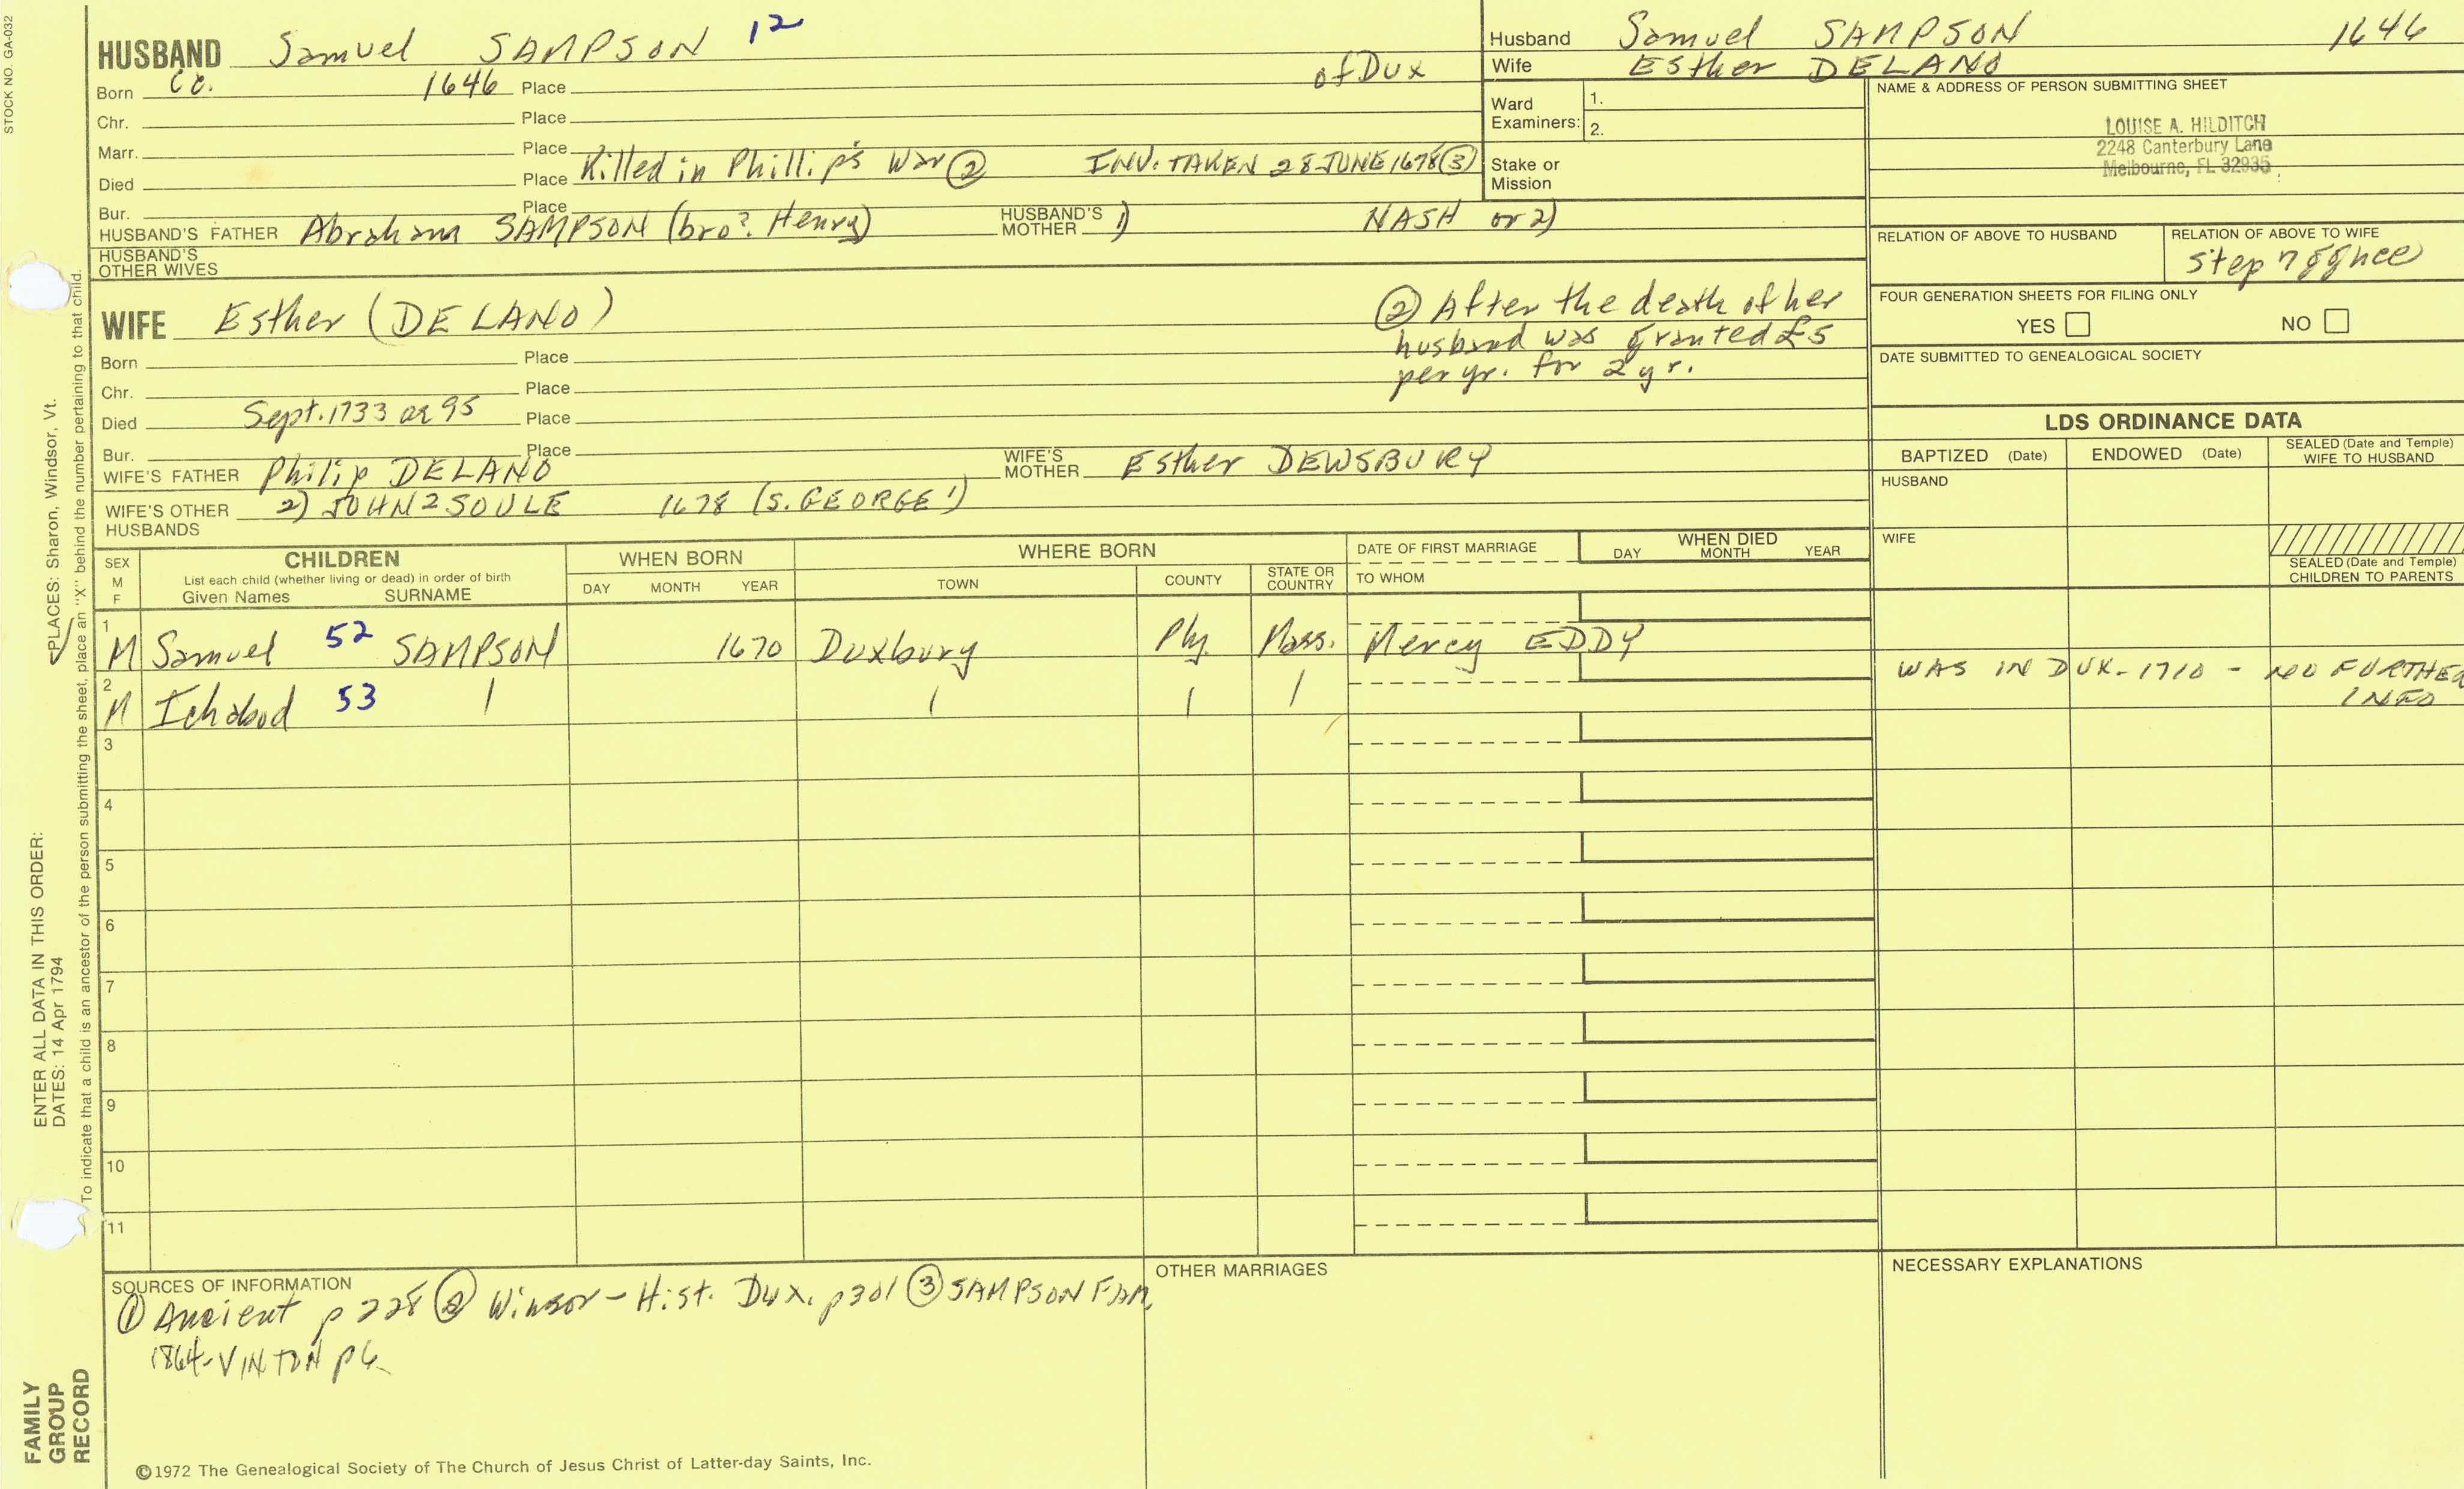 STOCK NO. GA-032
HUSBAND Samuel SAMPSON 12
Born Ca. 1646 Place of Dux
Chr. Place
Marr. Place
Died Place Killed in Phillip's War ② INV. TAKEN 28 JUNE 1678 ③
Bur. Place
HUSBAND'S FATHER Abraham SAMPSON (bro? Henry) HUSBAND'S MOTHER 1) NASH or 2)
HUSBAND'S OTHER WIVES
WIFE Esther (DELANO)
② After the death of her
husband was granted £5
per yr. for 2 yr.
Born Place
Chr. Place
Died Sept. 1733 ae 95 Place
Bur. Place
WIFE'S FATHER Philip DELANO WIFE'S MOTHER Esther DEWSBURY
WIFE'S OTHER HUSBANDS 2) JOHN 2 SOULE 1678 (S. GEORGE 1)
Husband Samuel SAMPSON 1646
Wife Esther DELANO
Ward Examiners: 1.
2.
Stake or Mission
NAME & ADDRESS OF PERSON SUBMITTING SHEET
LOUISE A. HILDITCH
2248 Canterbury Lane
Melbourne, FL 32935
RELATION OF ABOVE TO HUSBAND
RELATION OF ABOVE TO WIFE
FOUR GENERATION SHEETS FOR FILING ONLY
YES NO
DATE SUBMITTED TO GENEALOGICAL SOCIETY
LDS ORDINANCE DATA
BAPTIZED (Date) ENDOWED (Date) SEALED (Date and Temple) WIFE TO HUSBAND
HUSBAND
WIFE
SEALED (Date and Temple) CHILDREN TO PARENTS
SEX M F
CHILDREN
List each child (whether living or dead) in order of birth
Given Names SURNAME
WHEN BORN
DAY MONTH YEAR
WHERE BORN
TOWN COUNTY STATE OR COUNTRY
DATE OF FIRST MARRIAGE
TO WHOM
WHEN DIED
DAY MONTH YEAR
1 M Samuel 52 SAMPSON 1670 Duxbury Ply. Mass. Mercy EDDY
2 M Ichabod 53 WAS IN DUX - 1710 - NO FURTHER
INFO
3
4
5
6
7
8
9
10
11
SOURCES OF INFORMATION
① Ancient p 228 ② Winsor - Hist. Dux. p301 ③ SAMPSON FAM,
1864 - VINTON p6
OTHER MARRIAGES
NECESSARY EXPLANATIONS
©1972 The Genealogical Society of The Church of Jesus Christ of Latter-day Saints, Inc.
ENTER ALL DATA IN THIS ORDER:
DATES: 14 Apr 1794
PLACES: Sharon, Windsor, Vt.
To indicate that a child is an ancestor of the person submitting the sheet, place an "X" behind the number pertaining to that child.
FAMILY
GROUP
RECORD